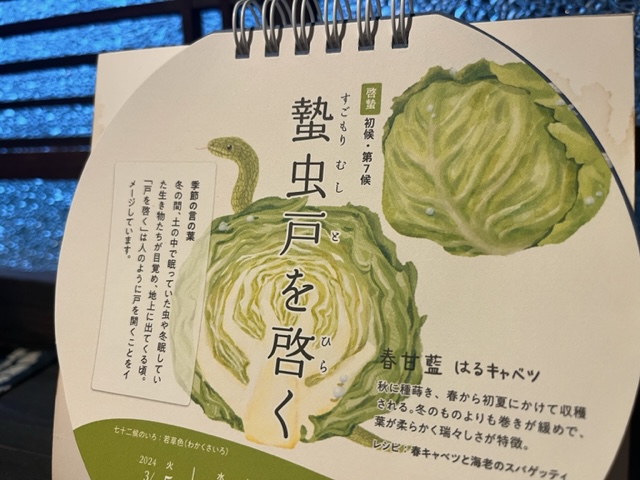 啓蟄
初候・第7候
すごもり むし と ひら
蟄虫戸を啓く
季節の言の葉
冬の間、土の中で眠っていた虫や冬眠してい
た生き物たちが目覚め、地上に出てくる頃。
「戸を啓く」は人のように戸を開くことをイ
メージしています。
春甘藍 はるキャベツ
秋に種蒔き、春から初夏にかけて収穫
される。冬のものよりも巻きが緩めで、
葉が柔らかく瑞々しさが特徴。
レシピ:春キャベツと海老のスパゲッティ
七十二候のいろ:若草色(わかくさいろ)
2024 火 水
3/5